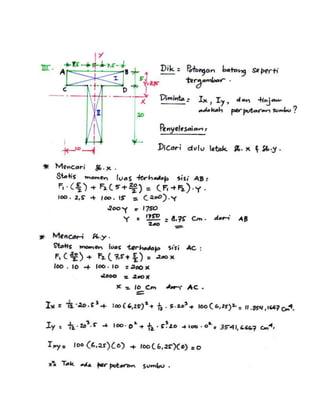 III.
7.5 5 7.5
Y
A B
I
5
C D
X
II
20
10
Dik : Potongan batang seperti
tergambar.
Diminta : Ix, Iy, dan tinjau
adakah perputaran sumbu ?
Penyelesaian :
Dicari dulu letak
* Mencari x.
Statis momen luas terhadap sisi AB :
F₁ . (5/2) + F₂ (5 + 20/2) = (F₁ + F₂) . Y.
100 . 2,5 + 100 . 15 = (200) . Y
200 Y = 1750
Y = 1750/200 = 8.75 Cm. dari AB
* Mencari y.
Statis momen luas terhadap sisi AC :
F₁ (20/2) + F₂ (7,5 + 5/2) = 200 X
100 . 10 + 100 . 10 = 200 X
2000 = 200 X
X = 10 Cm dari AC .
Ix = 1/12 . 20 . 5³ + 100 (6,25)² + 1/12 . 5 . 20³ + 100 (6,25)² = 11.354,1667 Cm⁴.
Iy = 1/12 . 20³ . 5 + 100 . 0² + 1/12 . 5³ . 20 + 100 . 0² = 3541,6667 Cm⁴.
Ixy = 100 (6,25) (0) + 100 (6,25) (0) = 0
Tak ada perputaran sumbu .